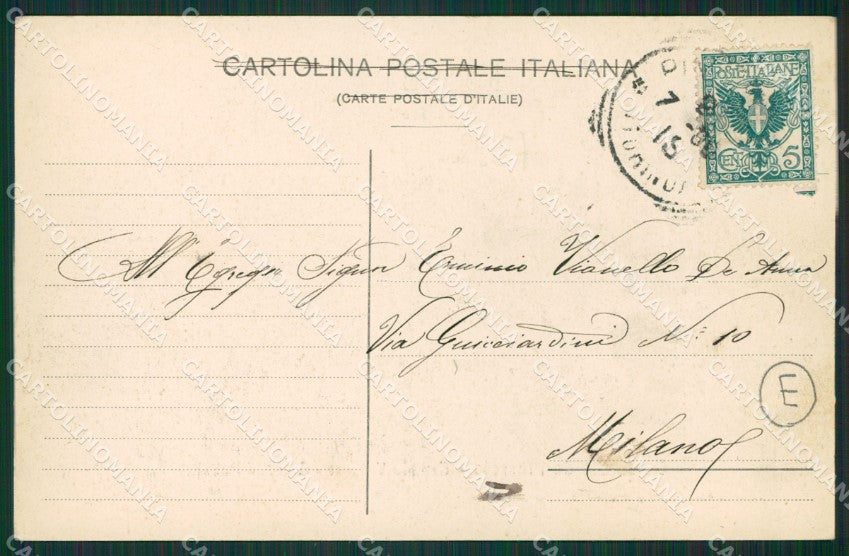 CARTOLINA POSTALE ITALIANA
(CARTE POSTALE D'ITALIE)
POSTE ITALIANE
CEN. 5
7
15
All'Egregio Signor Erminio Vianello De Anna
Via Guicciardini N.: 10
E
Milano
CARTOLINOMANIA